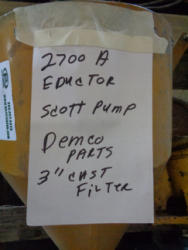 2700 A
EDUCTOR
SCOTT PUMP
DEMCO
PARTS
3" CAST
FILTER